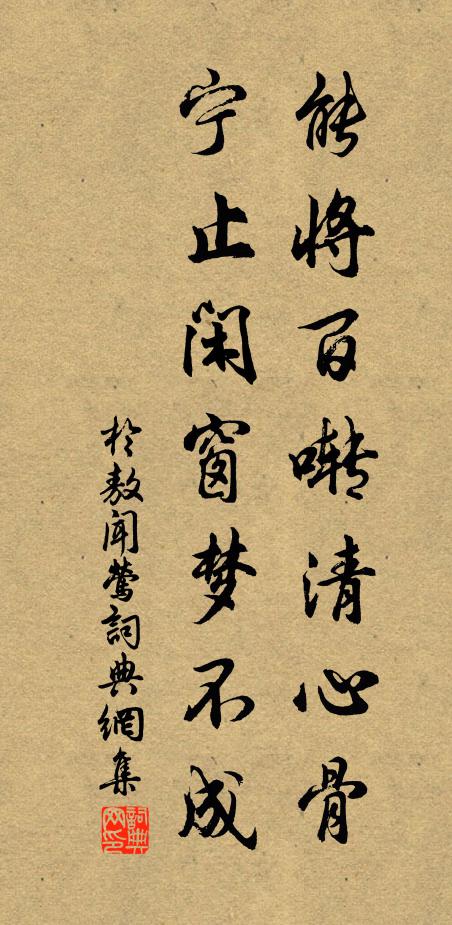 能将百啭清心骨
宁止闲窗梦不成
於敖聞鶯詞典網集
詞典
网印